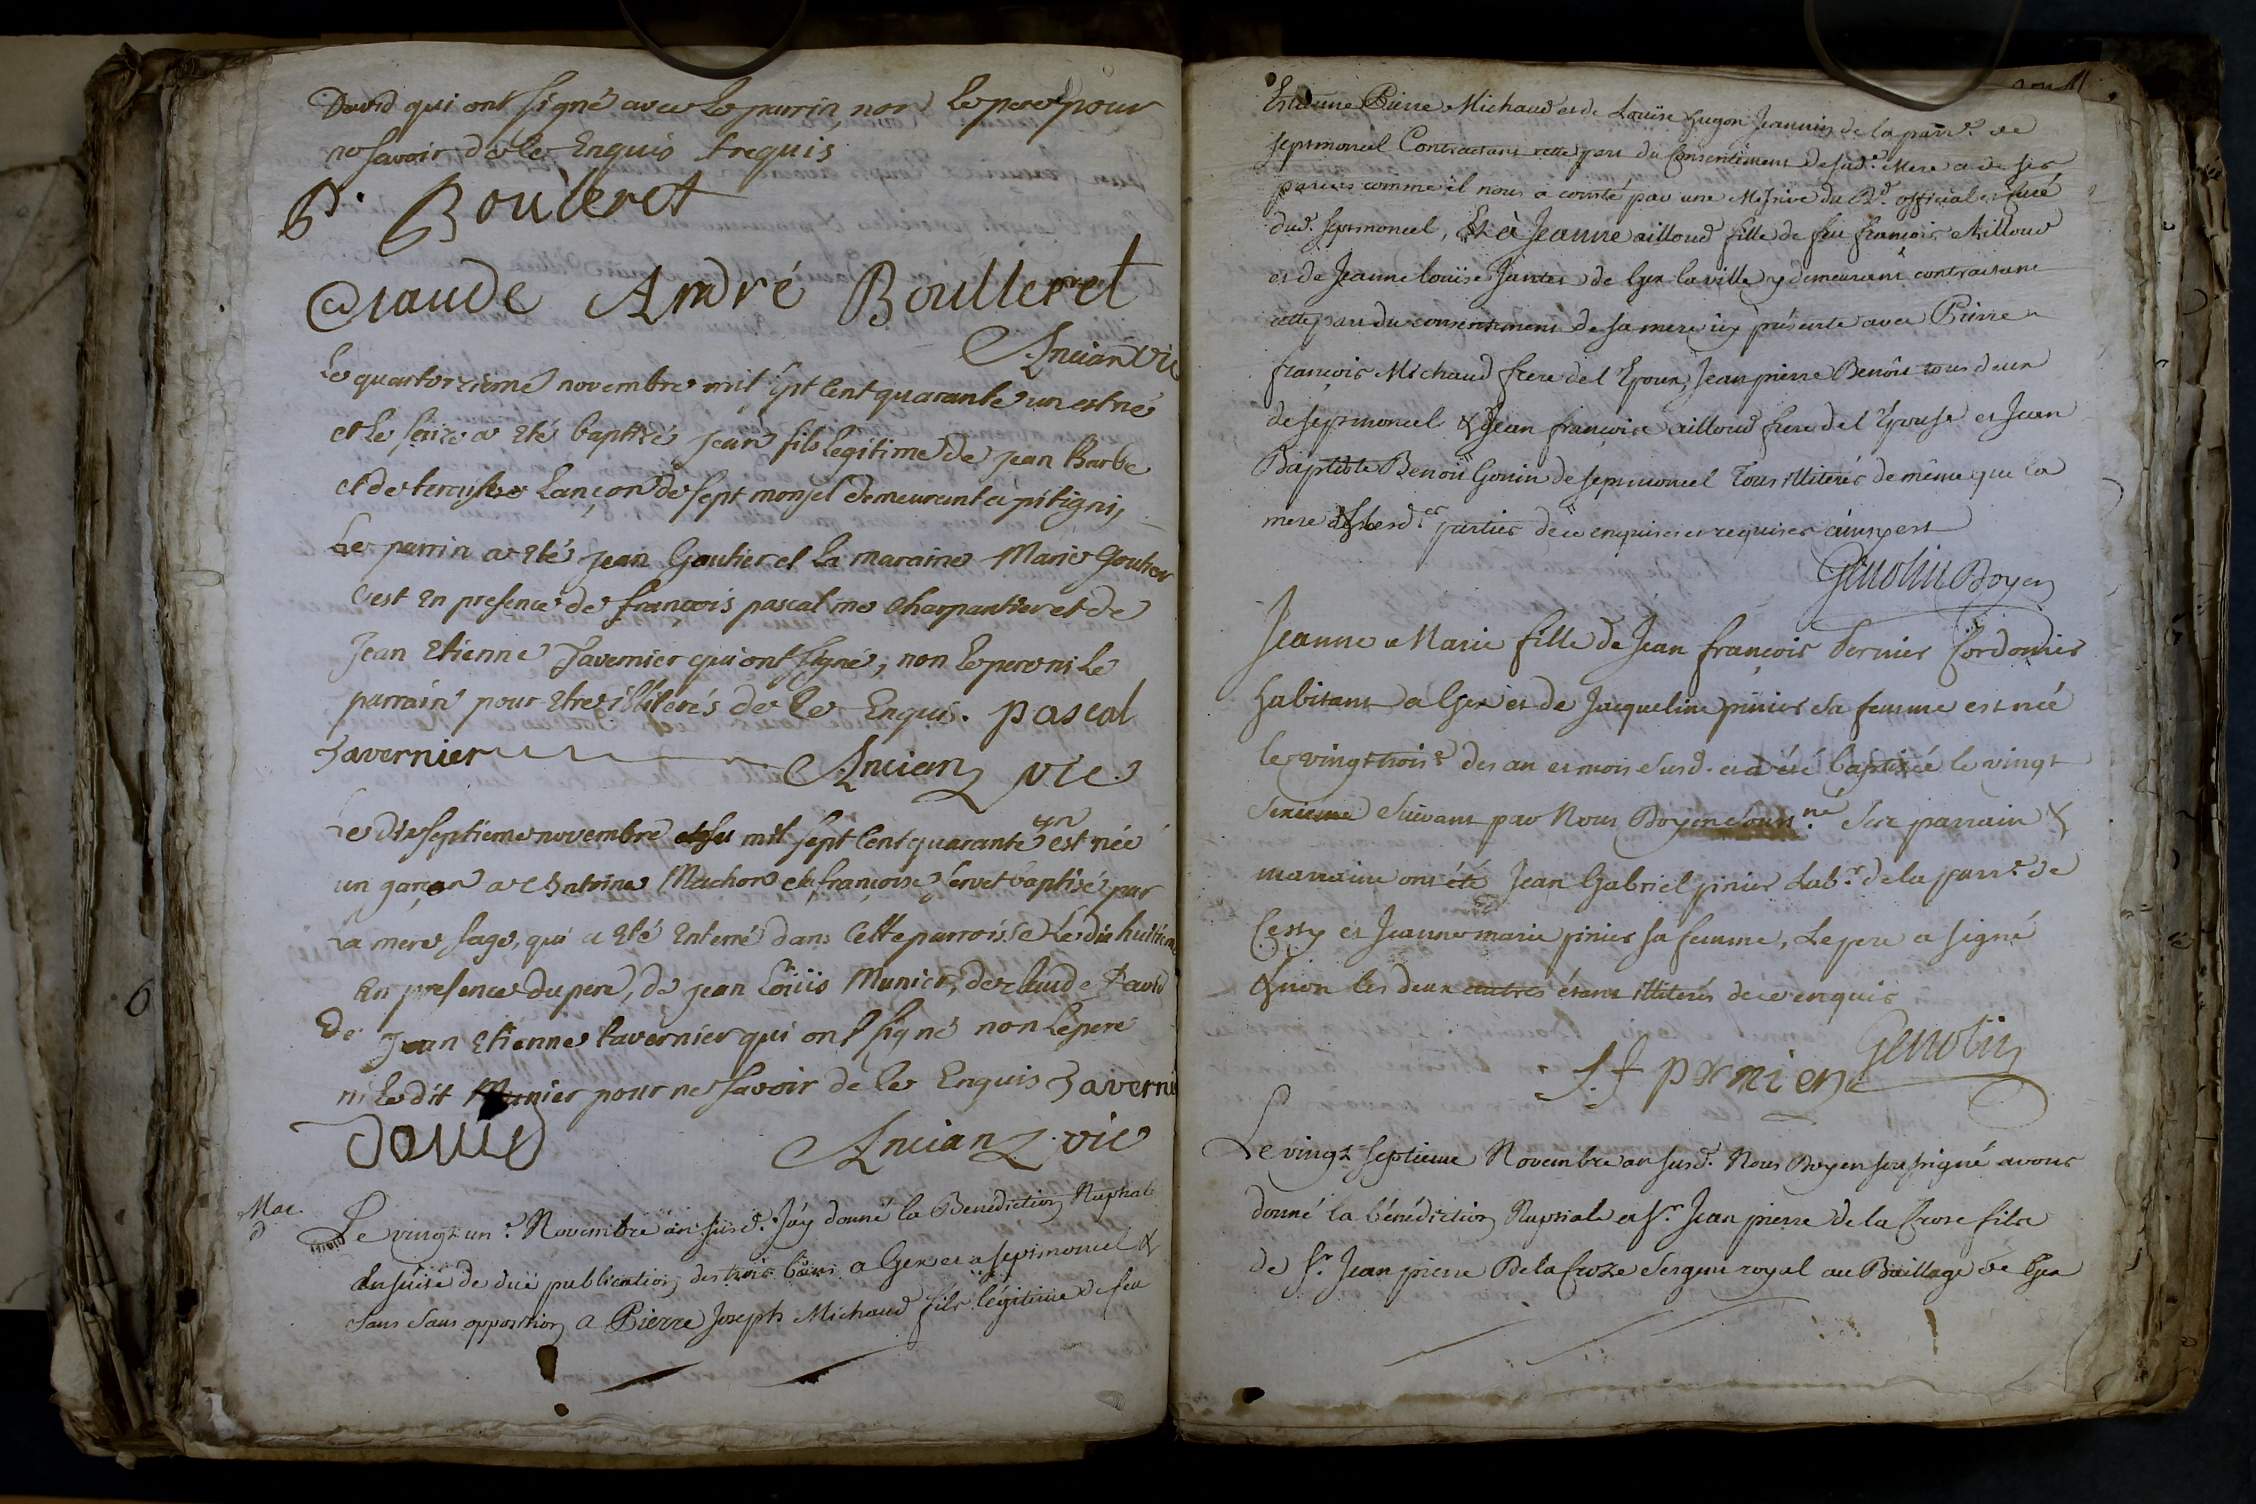 David qui ont signé avec le parrin non le pere pour
ne savoir de le Enquis & requis
Bouleret
Claude André Boulleret
Ancian vic
Le quatorzieme novembre mil sept cent quarante un est né
et le seize a eté baptizé jean fils legitime de jean Barbe
et de Lançon de sept monsel demeurant a pitigni,
Le parrin a eté jean Goutier et la maraine Marie Goutier
C'est en presence de françois pascal me charpantier et de
Jean etienne Tavernier qui ont signé, non le pere ni le
parrain pour etre illiterés de le Enquis. pascal
Tavernier Ancian vic
Le dixseptieme novembre mil sept cent quarante un est née
un garçon a Antoine Machon et françoise baptizé par
la mere sage, qui a eté enterré dans cette parroisse le dix huitieme
en presence du pere, de jean Loüis Munier, de claude David
De Jean etienne tavernier qui ont signé non le pere
ni le dit Munier pour ne savoir de le Enquis Taverni
David Ancian vic
Mar.
Le vingt un.e Novembre an susd. J'ay donné la Benediction Nuptiale
Ensuite de düe publication des trois bans a Gex et a septmoncel &
sans opposition a Pierre Joseph Michaud fils légitime de feu
Pierre Michaud et de Loüise hugon Jeannin de la parr.e de
septmoncel Contractant cette part du Consentement de sad.e Mere et de ses
parens comme il nous a consté par une Missive du R.d official et curé
dud. septmoncel, Et à Jeanne ailloud fille de feu françois Ailloud
et de Jeanne loüise de Gex la ville y demeurant contractant
cette part du consentement de sa mere icy présente avec Pierre
françois Michaud frere de l'Epoux, Jean pierre Benoit tous deux
de septmoncel & Jean françois ailloud frere de l'Epouse et Jean
Baptiste Benoit Gonin de septmoncel Tous illiterés de même que la
mere & lesd.es parties de ce enquises et requises ainsy est
Genolin Doyen
Jeanne Marie fille de Jean françois Pernier Cordonier
habitant a Gex et de Jacqueline pinier sa femme est née
le vingt trois.e des an et mois susd. et a été baptisée le vingt
sixieme suivant par Nous Doyen souss.né Ses parrain &
marraine ont été Jean Gabriel pinier Lab.r de la parr.e de
Cessy et Jeanne marie pinier sa femme, Le pere a signé
& non les deux autres étant illiterés de ce enquis
J f pernier Genolin
Le vingt septieme Novembre an susd. Nous Doyen soussigné avons
donné la bénédiction Nuptiale a S.r Jean pierre de la Croze fils
de S.r Jean pierre De la Croze Sergent royal au Baillage de Gex